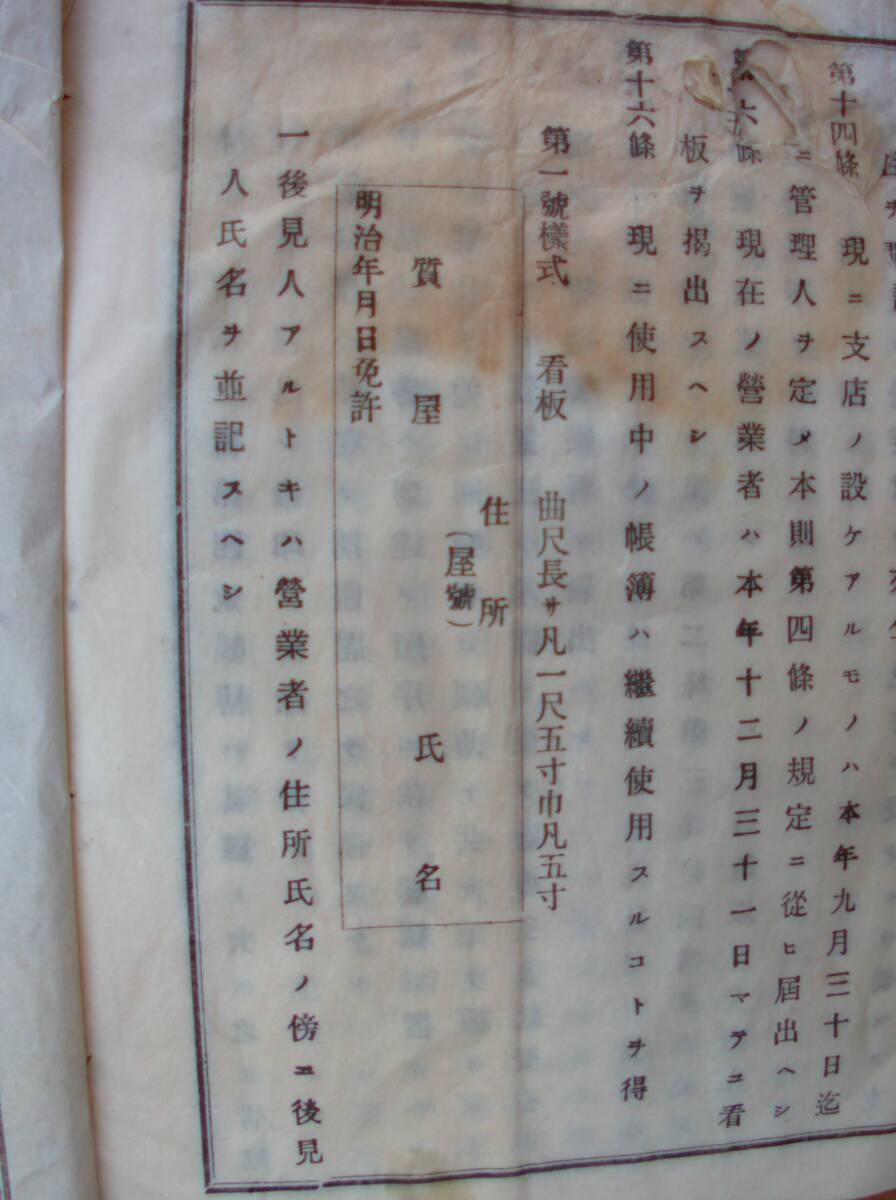 第十四條 現ニ支店ノ設ケアルモノハ本年九月三十日迄
ニ管理人ヲ定メ本則第四條ノ規定ニ從ヒ屆出ヘシ
條 現在ノ營業者ハ本年十二月三十一日マテニ看
板ヲ揭出スヘシ
第十六條 現ニ使用中ノ帳簿ハ繼續使用スルコトヲ得
第一號樣式 看板 曲尺長サ凡一尺五寸巾凡五寸
住所
(屋號)
質屋 氏名
明治年月日免許
一後見人アルトキハ營業者ノ住所氏名ノ傍ニ後見
人氏名ヲ並記スヘシ